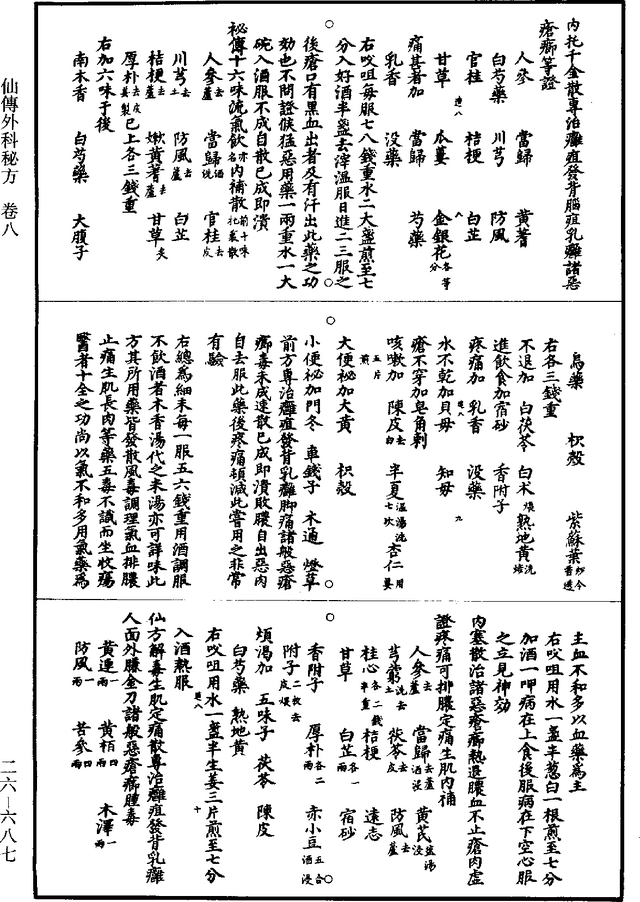 內托千金散專治癰疽發背腦疽乳癰諸惡
瘡癤等證
人參 當歸 黃蓍
白芍藥 川芎 防風
官桂 桔梗 白芷
甘草 瓜蔞 金銀花各等分
痛甚者加 當歸 芍藥
乳香 沒藥
右㕮咀每服七八錢重水二大盞煎至七
分入好酒半盞去滓溫服日進二三服之
後瘡口有黑血出者及有汗出此藥之功
効也不問證候猛惡用藥一兩重水一大
碗入酒服不成自散已成即潰
秘傳十六味流氣飲亦名內補散前十味化毒散
人參去蘆 當歸酒洗 官桂去皮
川芎去土 防風去蘆 白芷
桔梗去蘆 嫩黃蓍去蘆 甘草炙
厚朴去皮姜製 已上各三錢重
右加六味于後
南木香 白芍藥 大腹子
烏藥 枳殼 紫蘇葉
右各三錢重
不退加 白茯苓 白术煨 熟地黃洗焙
進飲食加宿砂 香附子
疼痛加 乳香 沒藥
水不乾加貝母 知母
瘡不穿加皂角刺
咳嗽加 陳皮去白 半夏溫湯洗七次 杏仁
大便秘加大黃 枳殼
小便秘加門冬 車錢子 木通 燈草
前方專治癰疽發背乳癰脚痛諸般惡瘡
癤毒未成速散已成即潰敗膿自出惡肉
自去服此藥後疼痛頓減此嘗用之非常
有驗
右總為細末每一服五六錢重用酒調服
不飲酒者木香湯代之末湯亦可詳味此
方其所用藥皆發散風毒調理氣血排膿
止痛生肌長肉等藥五毒不試而坐收瘍
醫者十全之功尚以氣不和多用氣藥為
主血不和多以血藥為主
右㕮咀用水一盞半葱白一根煎至七分
加酒一呷病在上食後服病在下空心服
之立見神効
內塞散治諸惡瘡癤熱退膿血不止瘡肉虛
證疼痛可排膿定痛生肌內補
人參去蘆 當歸去蘆酒浸 黃芪鹽湯浸
芎藭洗去土 茯苓去皮 防風去蘆
桂心各二錢半重 桔梗 遠志
甘草 白芷各一兩 宿砂
香附子 厚朴各二兩 赤小豆五合酒浸
附子二枚去皮煨
煩渴加 五味子 茯苓 陳皮
白芍藥 熟地黃
右㕮咀用水一盞半生姜三片煎至七分
入酒熱服
仙方解毒生肌定痛散專治癰疽發背乳癰
人面外臁金刀諸般惡瘡癤腫毒
黃連一兩 黃栢四兩 木澤一兩
防風一兩 苦參四兩
仙傳外科秘方 卷八
二六—六八七